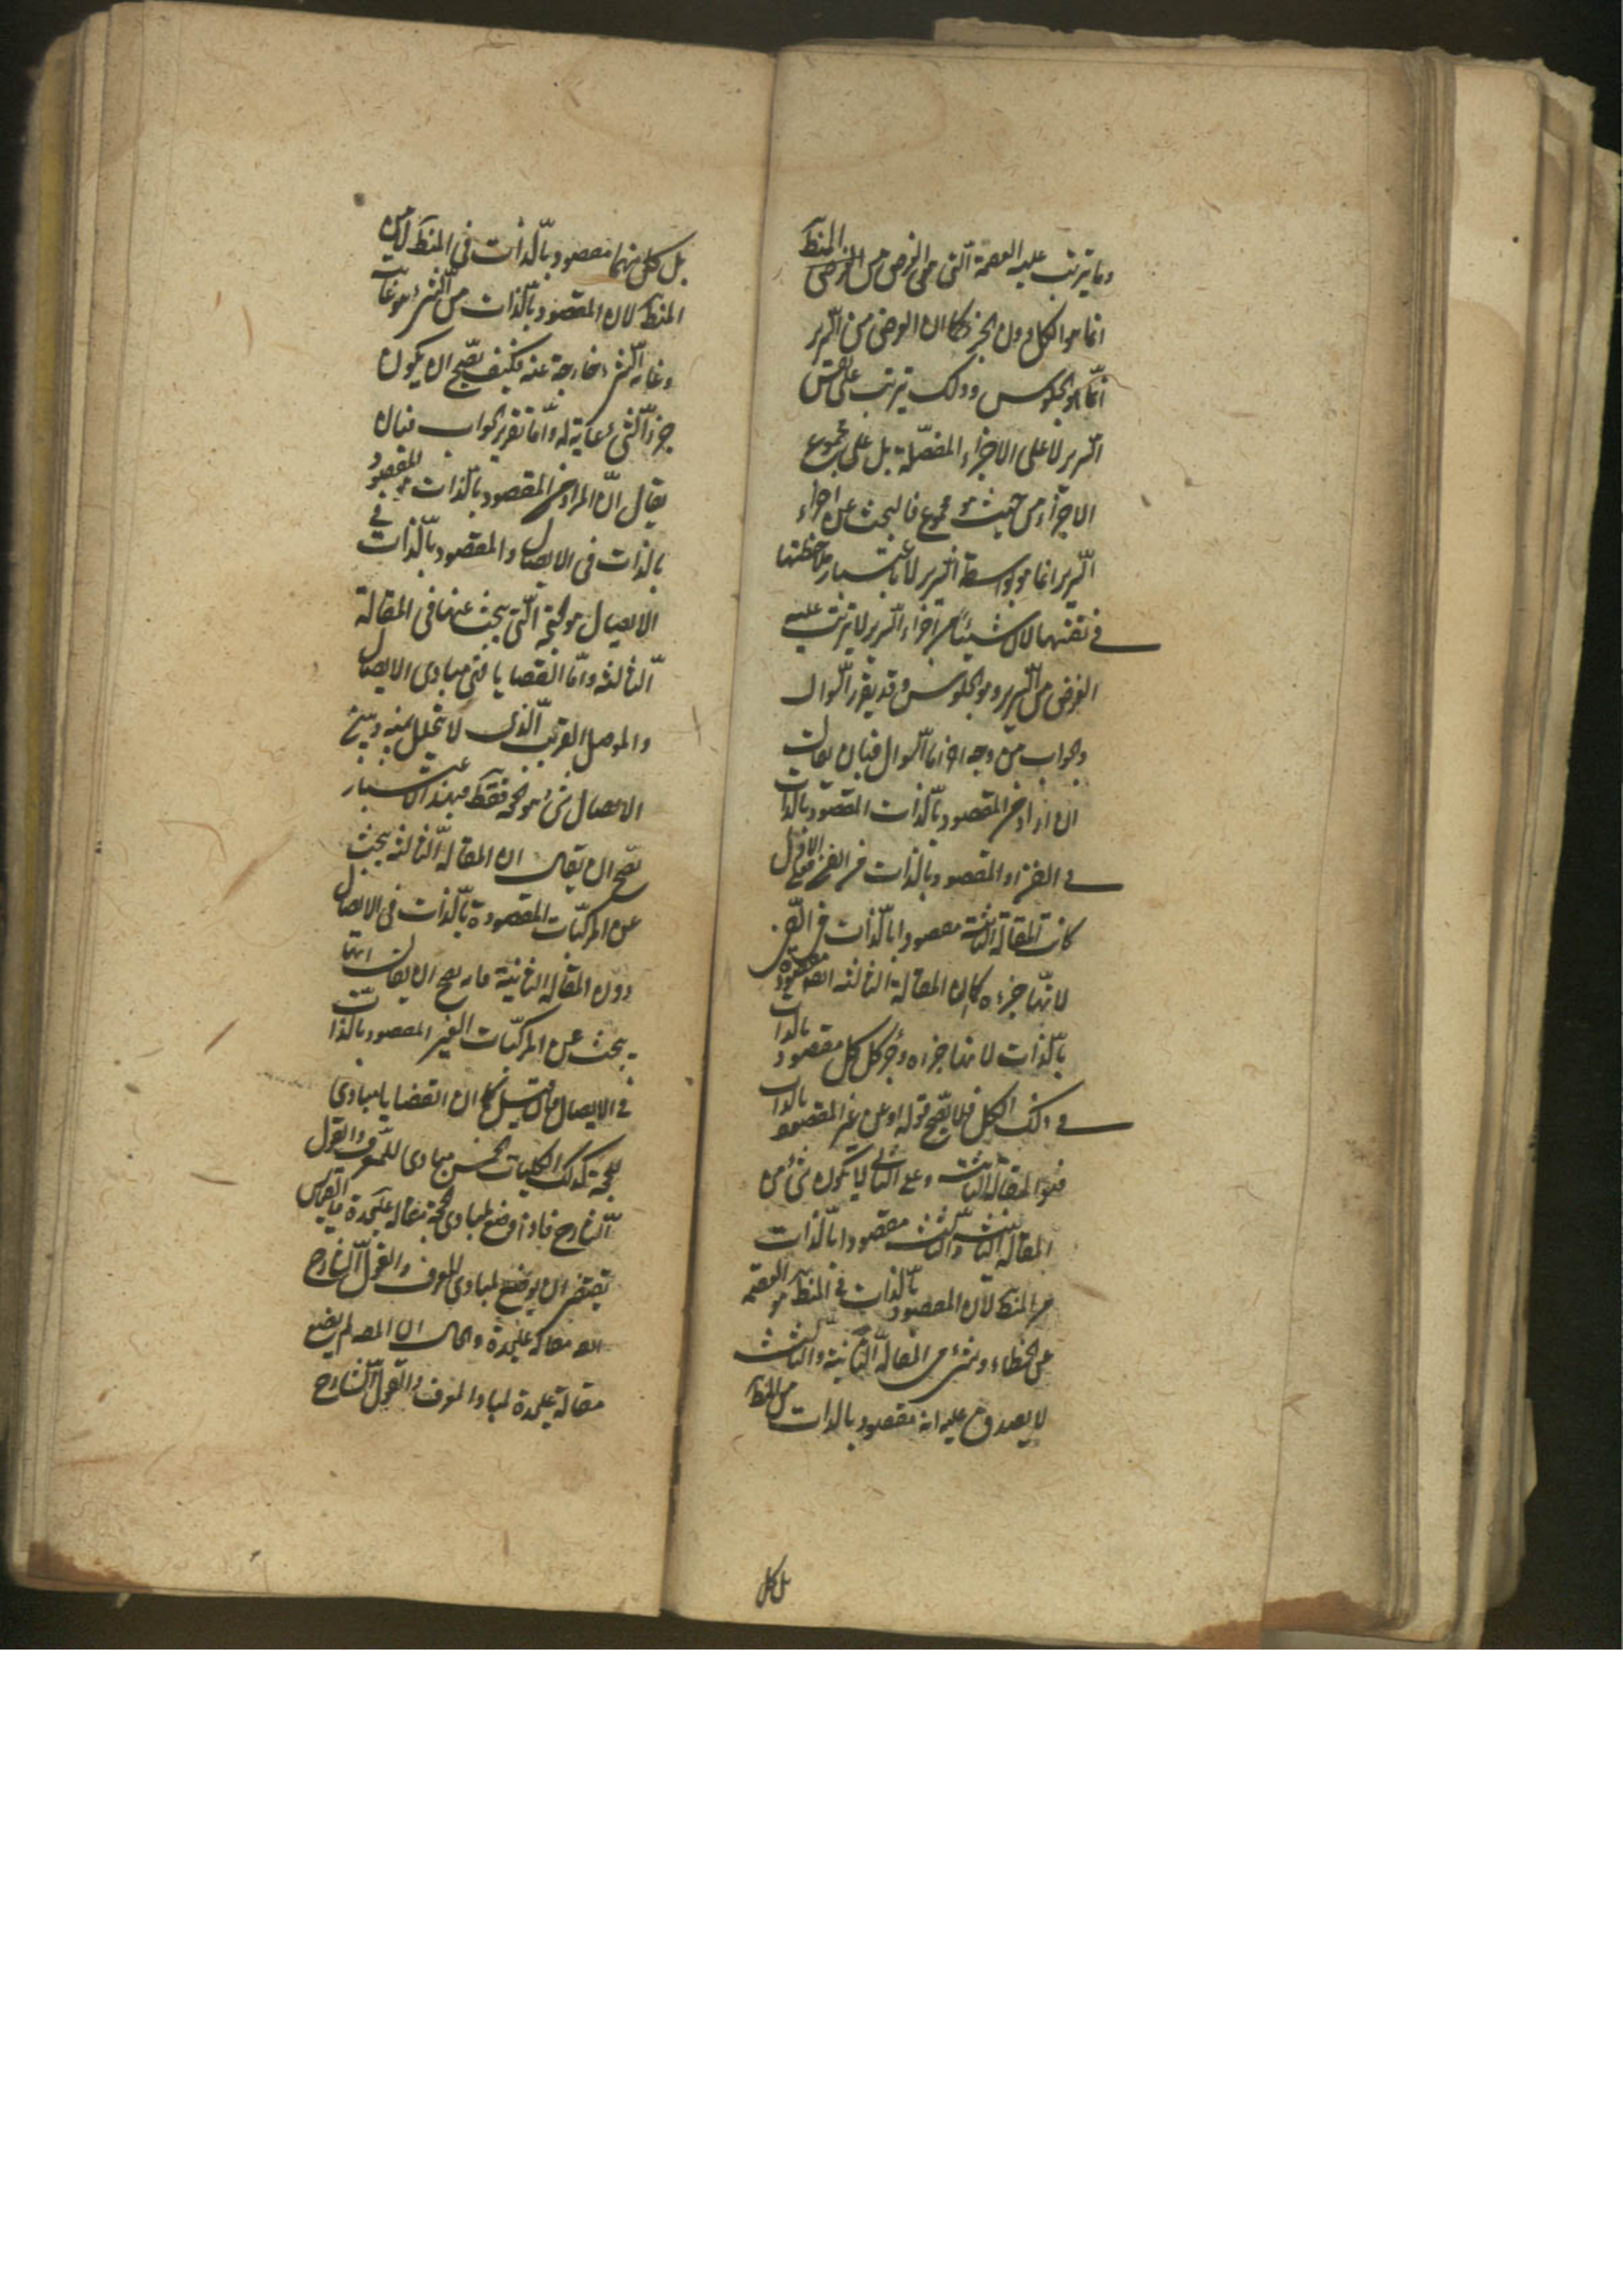 وما يترتب عليه العصمة التى هى الغرض من المنط
انما هو الكل دون الجزء كما ان الغرض من السرير
انما هو الجلوس وذلك يترتب على نفس
السرير لا على الاجزاء المفصلة بل على مجموع
الاجزاء من حيث هو مجموع فالبحث عن اجزاء
السرير انما هو بواسطة السرير لا باعتبار ملاحظتها
فى نفسها لان شيئا من اجزاء السرير لا يترتب عليه
الغرض من السرير وهو الجلوس وقد يقرر السوال
والجواب من وجه اخر اما السوال فبان يقال
ان اراد من المقصود بالذات المقصود بالذات
فى الفن او المقصود بالذات من الفن فعلى الاول
كانت المقالة الثانية مقصودا بالذات فى الفن
لانها جزءه كما ان المقالة الثالثة ايضا مقصودة
بالذات لانها جزءه وجزء كل كل مقصود بالذات
فى ذلك الكل فلا يصح قوله او عن غير المقصود بالذات
فهو المقالة الثانية وعلى الثانى لا يكون شئ من
المقالة الثانية والثالثة مقصودا بالذات
من المنط لان المقصود بالذات فى المنط هو العصمة
عن الخطاء وشئ من المقالة الثانية والثالثة
لا يصدق عليه انه مقصود بالذات من المنط
بل كل
بل كل منهما مقصود بالذات فى المنط لا من
المنط لان المقصود بالذات من الشئ هو غايته
وغاية الشئ خارجة عنه فكيف يصح ان يكون
جزء الشئ غاية له واما تقرير الجواب فبان
يقال ان المراد من المقصود بالذات هو المقصود
بالذات فى الايصال والمقصود بالذات فى
الايصال هو الحجة التى يبحث عنها فى المقالة
الثالثة واما القضايا فهى مبادى الايصال
والموصل القريب الذى لا يتخلل بينه وبين
الايصال شئ هو الحجة فقط فبهذا الاعتبار
يصح ان يقال ان المقالة الثالثة يبحث
عن المركبات المقصودة بالذات فى الايصال
دون المقالة الثانية فانه يصح ان يقال انها
يبحث عن المركبات الغير المقصود بالذات
فى الايصال فان قيل كما ان القضايا مبادى
للحجة كذلك الكليات الخمس مبادى للمعرف والقول
الشارح فاذا وضع لمبادى الحجة مقالة عليحدة فالقياس
يقتضى ان يوضع لمبادى المعرف والقول الشارح
ايضا مقالة عليحدة والحال ان المصـ لم يضع
مقالة عليحدة لمبادى المعرف والقول الشارح